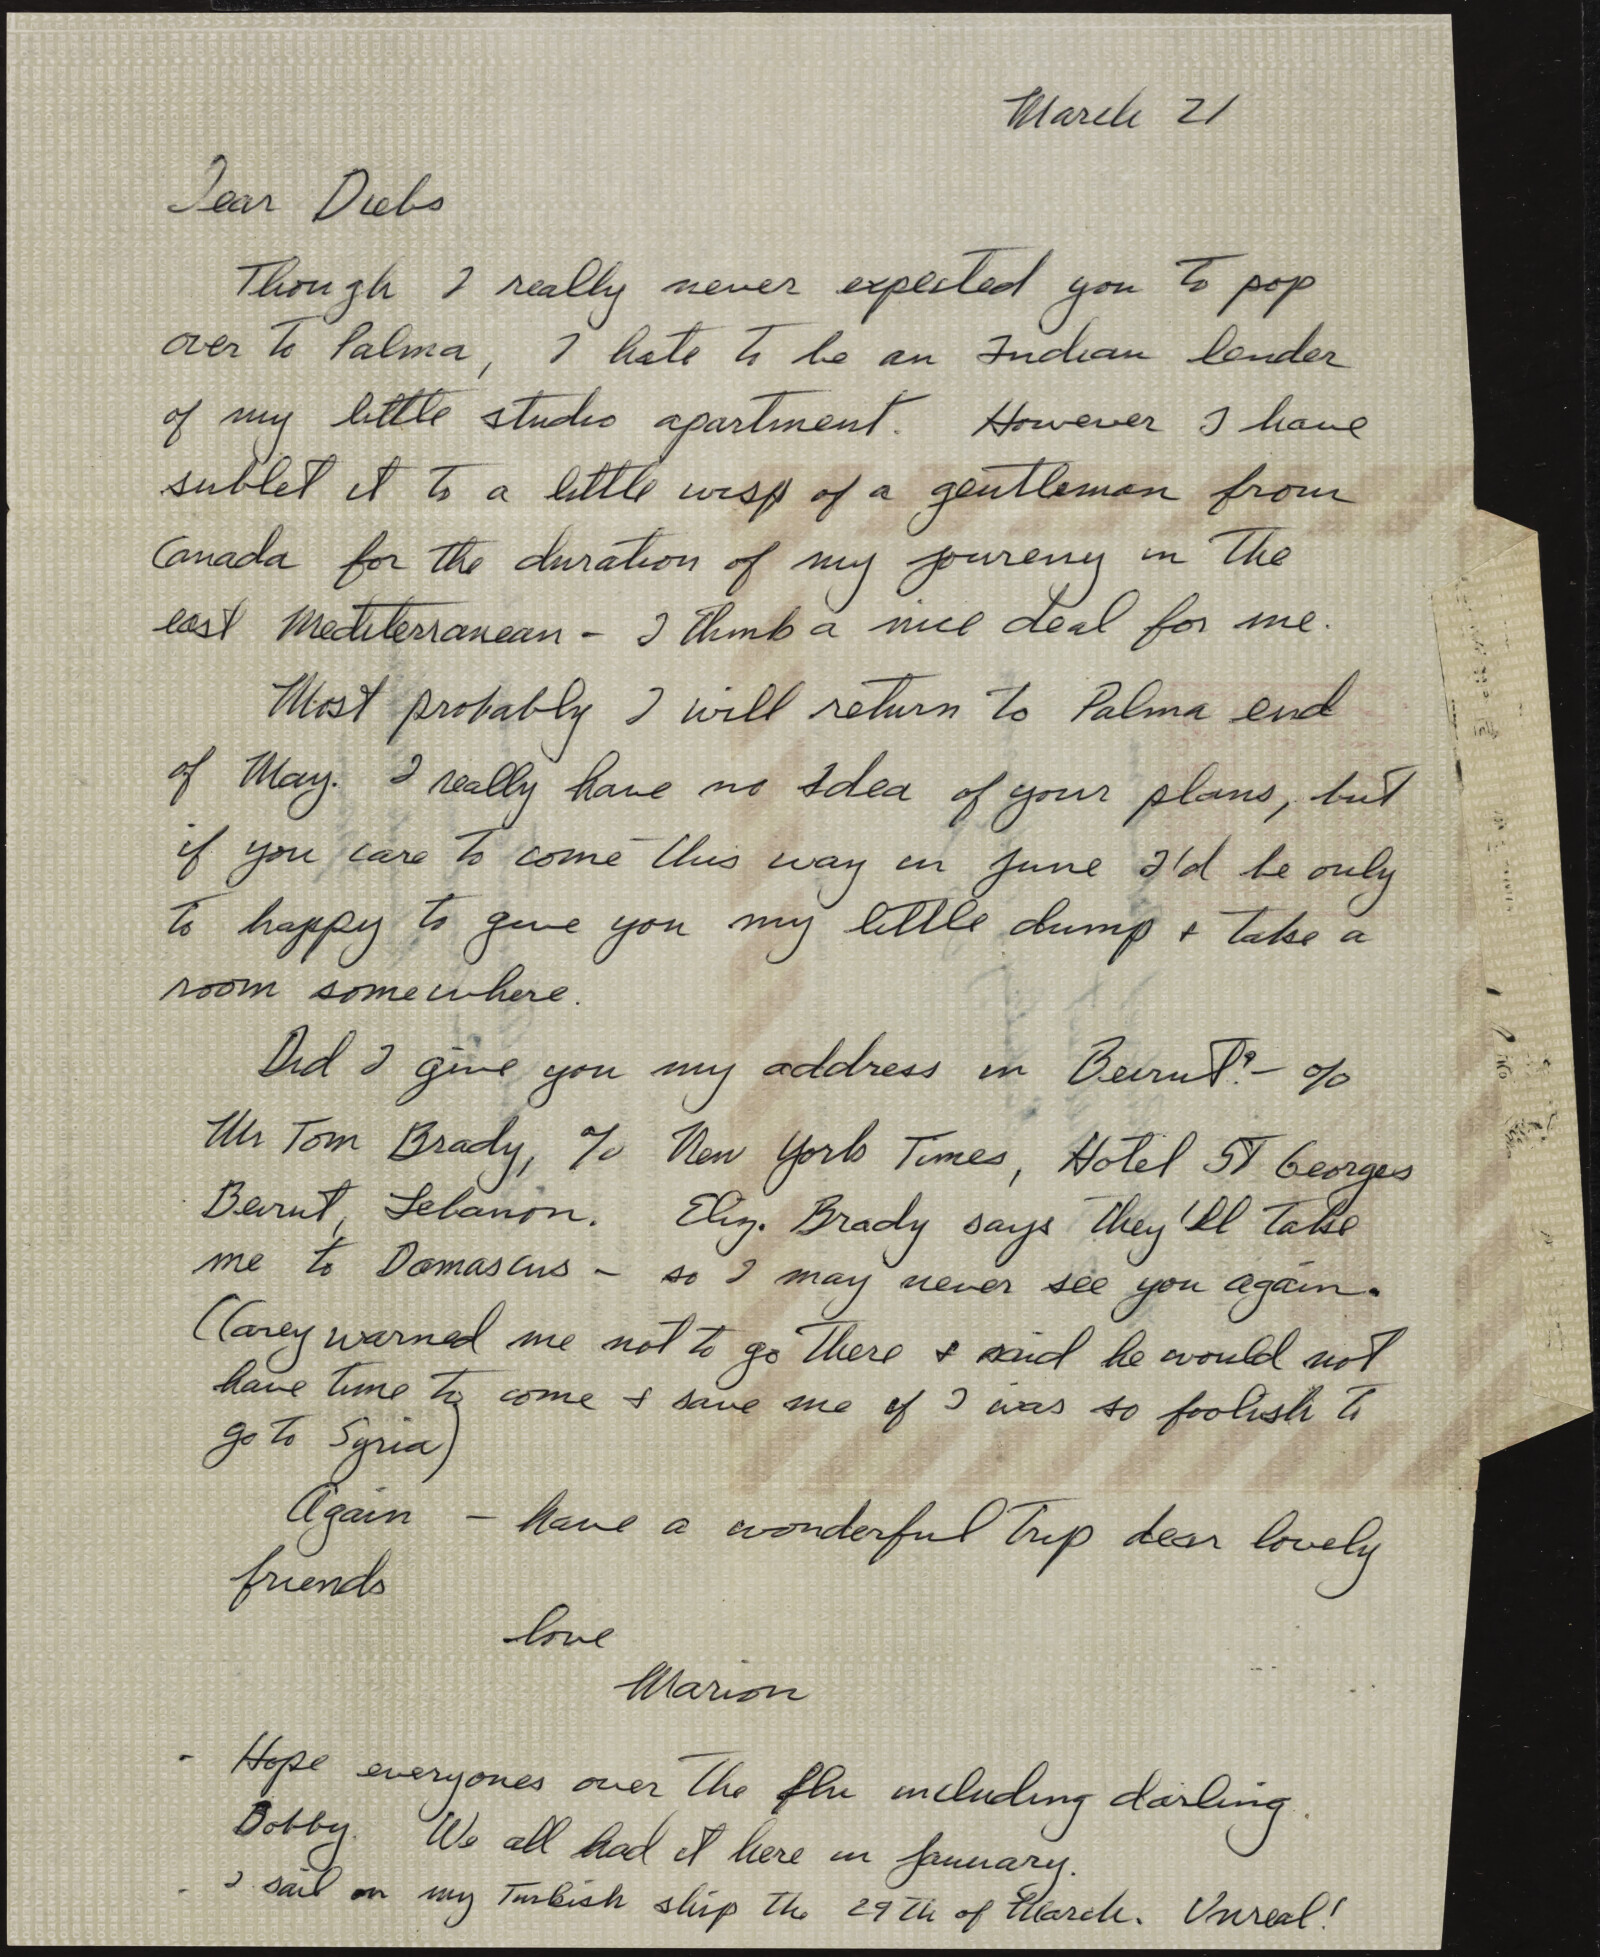 March 21
Dear Diebs
Though I really never expected you to pop
over to Palma, I hate to be an Indian lender
of my little studio apartment. However I have
sublet it to a little wisp of a gentleman from
Canada for the duration of my joureny in the
east Mediterranean - I think a nice deal for me.
Most probably I will return to Palma end
of May. I really have no idea of your plans, but
if you care to come this way in June I'd be only
to happy to give you my little dump & take a
room somewhere.
Did I give you my address in Beirut? - c/o
Mr Tom Brady, c/o New York Times, Hotel St Georges
Beirut, Lebanon. Eliz. Brady says they'll take
me to Damascus - so I may never see you again.
(Carey warned me not to go there & said he would not
have time to come & save me if I was so foolish to
go to Syria)
Again - have a wonderful trip dear lovely
friends
love
Marion
- Hope everyones over the flu including darling
Bobby. We all had it here in January.
- I sail on my Turkish ship the 29th of March. Unreal!